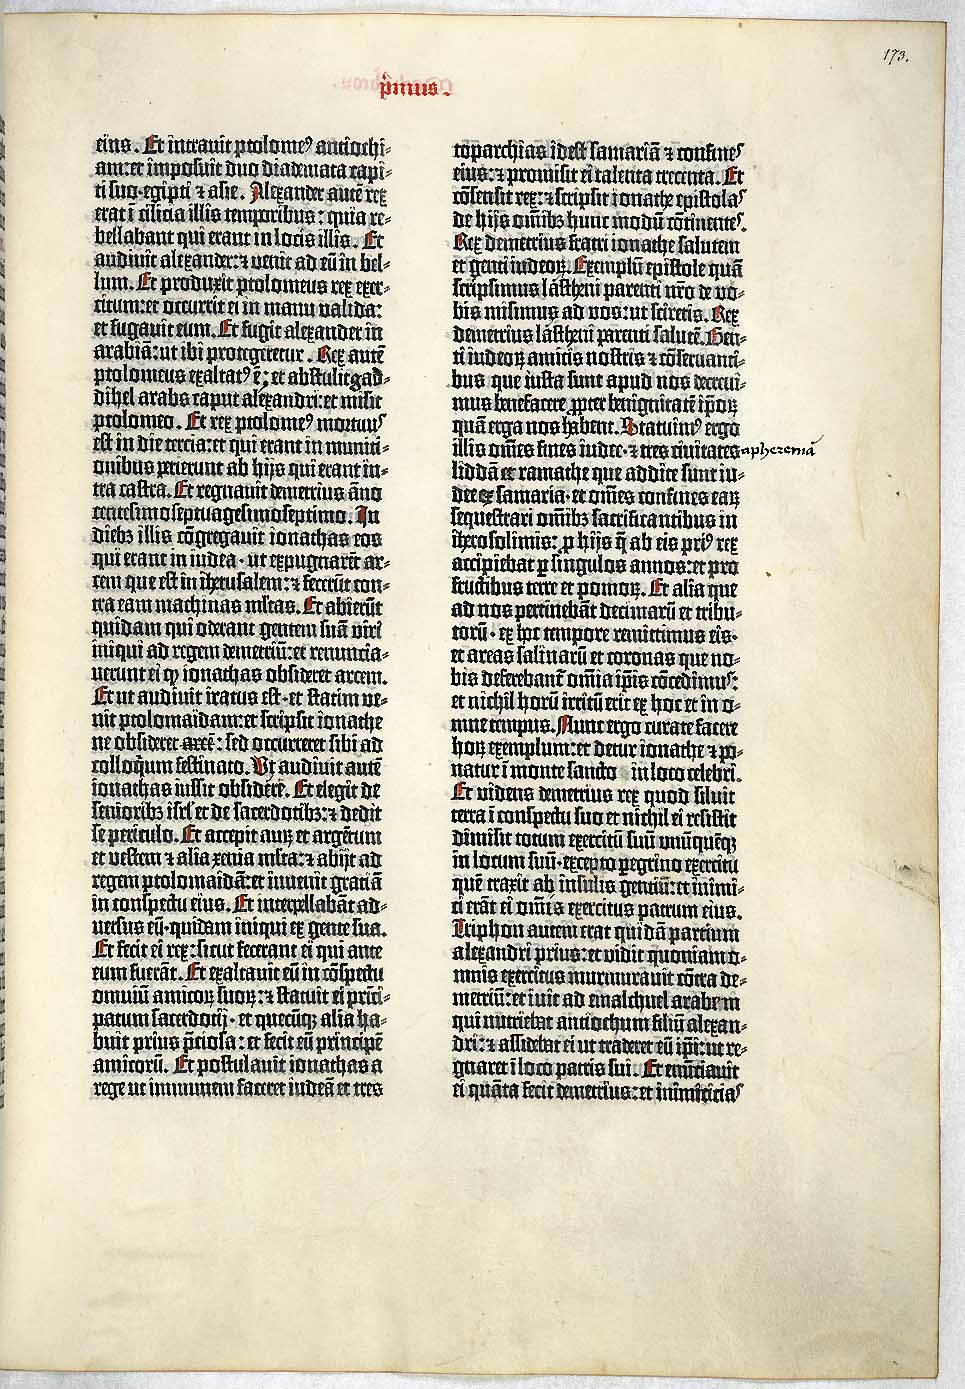 173.
p̄mus.
eius. Et intrauit ptolomeꝰ antiochi-
am: et imposuit duo diademata capi-
ti suo·egipti ⁊ asie. Alexander autē rex
erat ī cilicia illis temporibus: quia re-
bellabant qui erant in locis illis. Et
audiuit alexander: ⁊ uenit ad eū in bel-
lum. Et produxit ptolomeus rex exer-
citum: et occurrit ei in manu valida:
et fugauit eum. Et fugit alexander in
arabiā: ut ibi protegeretur. Rex autē
ptolomeus exaltatꝰ ē; et abstulit gad-
dihel arabs caput alexandri: et misit
ptolomeo. Et rex ptolomeꝰ mortuuꝰ
est in die tercia: et qui erant in muniti-
onibus perierunt ab hijs qui erant in-
tra castra. Et regnauit demetrius āno
centesimoseptuagesimoseptimo. In
diebꝫ illis cōgregauit ionathas eos
qui erant in iudea · ut expugnarēt ar-
cem que est in iherusalem: ⁊ fecerūt con-
tra eam machinas mltas. Et abierūt
quidam qui oderant gentem suā viri
iniqui ad regem demetriū: et renuncia-
uerunt ei ꝙ ionathas obsideret arcem.
Et ut audiuit iratus est · et statim ve-
nit ptolomaidam: et scripsit ionathe
ne obsideret arcē: sed occurreret sibi ad
colloqum festinato. Vt audiuit autē
ionathas iussit obsidere. Et elegit de
senioribꝫ isrl' et de sacerdotibꝫ: ⁊ dedit
se periculo. Et accepit auꝝ et argētum
et vestem ⁊ alia xenia mlta: ⁊ abijt ad
regem ptolomaidā: et inuenit gratiā
in conspectu eius. Et interpellabāt ad-
uersus eū · quidam iniqui ex gente sua.
Et fecit ei rex: sicut fecerant ei qui ante
eum fuerāt. Et exaltauit eū in cōspectu
omniū amicoꝝ suoꝝ: ⁊ statuit ei princi-
patum sacerdotij · et quecūqꝫ alia ha-
buit prius p̄ciosa: et fecit eū principē
amicorū. Et postulauit ionathas a
rege ut immunem faceret iudeā et tres
toparchias idest samariā ⁊ confineꝰ
eius: ⁊ promisit ei talenta trecenta. Et
cōsensit rex: ⁊ scripsit ionathe epistolaꝰ
de hijs omībꝫ hunc modū cōtinenteꝰ.
Rex demetrius fratri ionathe salutem
et genti iudeoꝝ. Exemplū epistole quā
scripsimus lastheni parenti nr̄o de vo-
bis misimus ad vos: ut sciretis. Rex
demetrius lastheni parenti salutē. Gen-
ti iudeoꝝ amicis nostris ⁊ cōseruanti-
bus que iusta sunt apud nos decreui-
mus benefacere ꝓpter benignitatē ip̄oꝝ
quā erga nos habent. Statuimꝰ ergo
illis om̄es fines iudee · ⁊ tres ciuitates apheremā
liddā et ramathe que addite sunt iu-
dee ex samaria · et om̄es confines eaꝝ
sequestrari omībꝫ sacrificantibus in
iherosolimis: ꝓ hijs q̄ ab eis priꝰ rex
accipiebat ꝑ singulos annos: et pro
fructibus terre et pomoꝝ. Et alia que
ad nos pertinebāt decimarū et tribu-
torū · ex hoc tempore remittimus eis·
et areas salinarū et coronas que no-
bis deferebant̄ omia ip̄is cōcedimuꝰ:
et nichil horū irritū erit ex hoc et in o-
mne tempus. Nunc ergo curate facere
hoꝝ exemplum: et detur ionathe ⁊ po-
natur ī monte sancto in loco celebri.
Et videns demetrius rex quod siluit
terra ī conspectu suo et nichil ei resistit
dimisit totum exercitū suū vnūquēqꝫ
in locum suū · excepto ꝑegrino exercitu
quē traxit ab insulis gentiū: et inimi-
ci erāt ei om̄is exercitus patrum eius.
Triphon autem erat quidā partium
alexandri prius: et vidit quoniam o-
mnis exercitus murmurauit cōtra de-
metriū: et iuit ad emalchuel arabem
qui nutriebat antiochum filiū alexan-
dri: ⁊ assidebat ei ut traderet eū ip̄i: ut re-
gnaret ī loco patris sui. Et enūciauit
ei quāta fecit demetrius: et inimiciciaꝰ